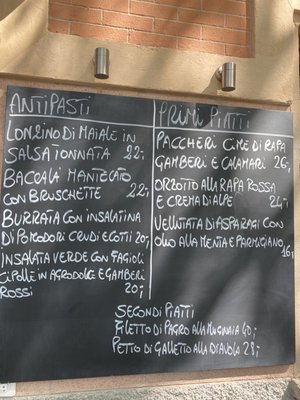 ANTIPASTI
LONZINO DI MAIALE IN
SALSA TONNATA 22;
BACCALÀ MANTECATO
CON BRUSCHETTE 22;
BURRATA CON INSALATINA
DI POMODORI CRUDI E COTTI 20;
INSALATA VERDE CON FAGIOLI
CIPOLLE IN AGRODOLCE E GAMBERI
ROSSI 20;
PRIMI PIATTI
PACCHERI CIME DI RAPA
GAMBERI E CALAMARI 26;
ORZOTTO ALLA RAPA ROSSA
E CREMA DI ALPE 24;
VELLUTATA DI ASPARAGI CON
OLIO ALLA MENTA E PARMIGIANO
16;
SECONDI PIATTI
FILETTO DI PAGRO ALLA MUGNAIA 40;
PETTO DI GALLETTO ALLA DIAVOLA 28;